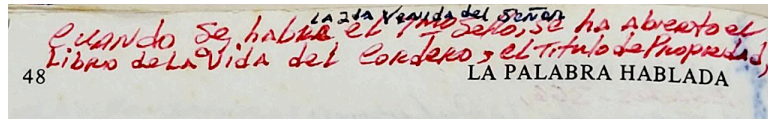 LA 2da Venida del Señor
Cuando se habla el 1mo Sello, se ha abierto el
Libro de La Vida del Cordero, el Titulo de Propiedad,
48 LA PALABRA HABLADA